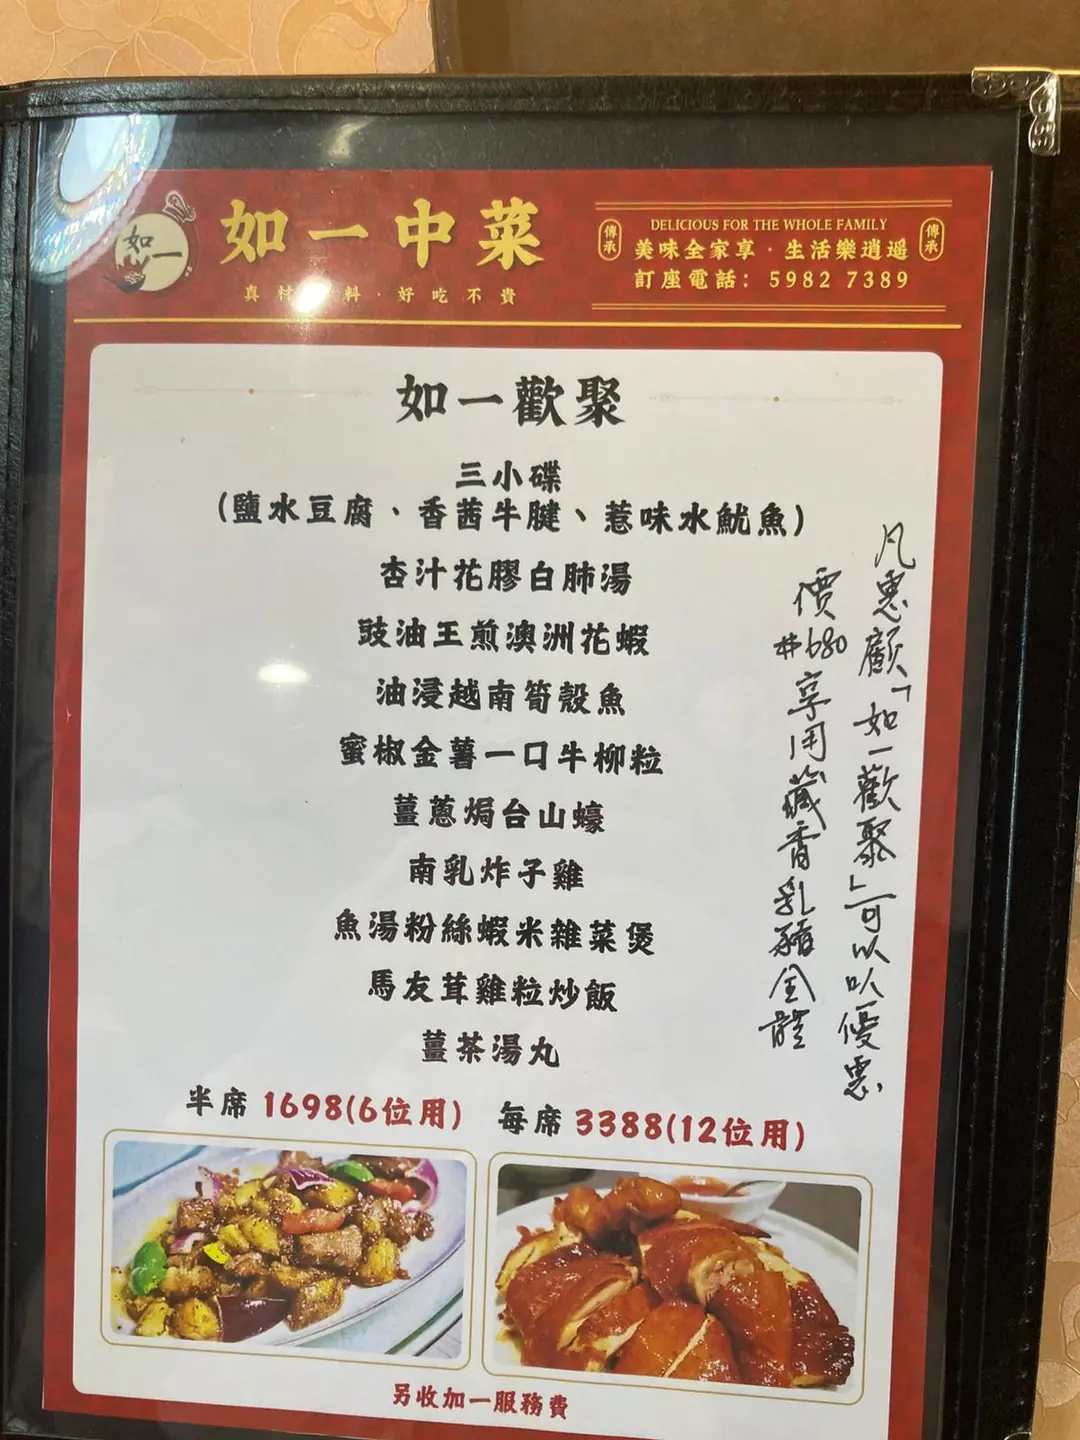 如一
如一中菜
真材 料·好吃不貴
DELICIOUS FOR THE WHOLE FAMILY
美味全家享·生活樂逍遥
訂座電話: 5982 7389
傳承
傳承
如一歡聚
三小碟
(鹽水豆腐、香茜牛腱、惹味水魷魚)
杏汁花膠白肺湯
豉油王煎澳洲花蝦
油浸越南筍殼魚
蜜椒金薯一口牛柳粒
薑蔥焗台山蠔
南乳炸子雞
魚湯粉絲蝦米雜菜煲
馬友茸雞粒炒飯
薑茶湯丸
半席 1698(6位用) 每席 3388(12位用)
凡惠顧「如一歡聚」可以以優惠
價#680享用藏香乳豬全體
另收加一服務費